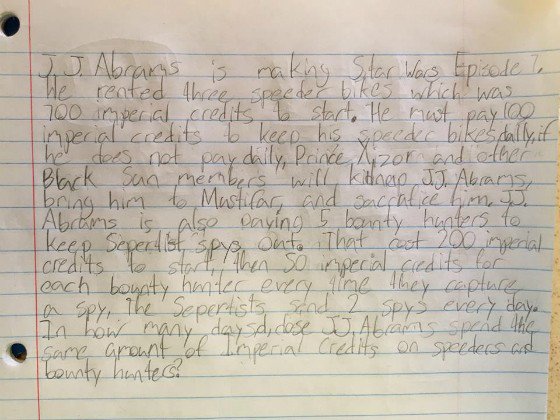 J.J. Abrams is making Star Wars Episode 7.
He rented three speeder bikes which was
700 imperial credits to start. He must pay 100
imperial credits to keep his speeder bikes daily, if
he does not pay daily, Prince Xizorn and other
Black Sun members will kidnap J.J. Abrams,
bring him to Mustifar, and sacrafice him. J.J.
Abrams is also paying 5 bounty hunters to
keep Sepertist spys out. That cost 200 imperial
credits to start, then 50 imperial credits for
each bounty hunter every time they capture
a spy. The Sepertists send 2 spys every day.
In how many days dose J.J. Abrams spend the
same amount of Imperial credits on speeders and
bounty hunters?